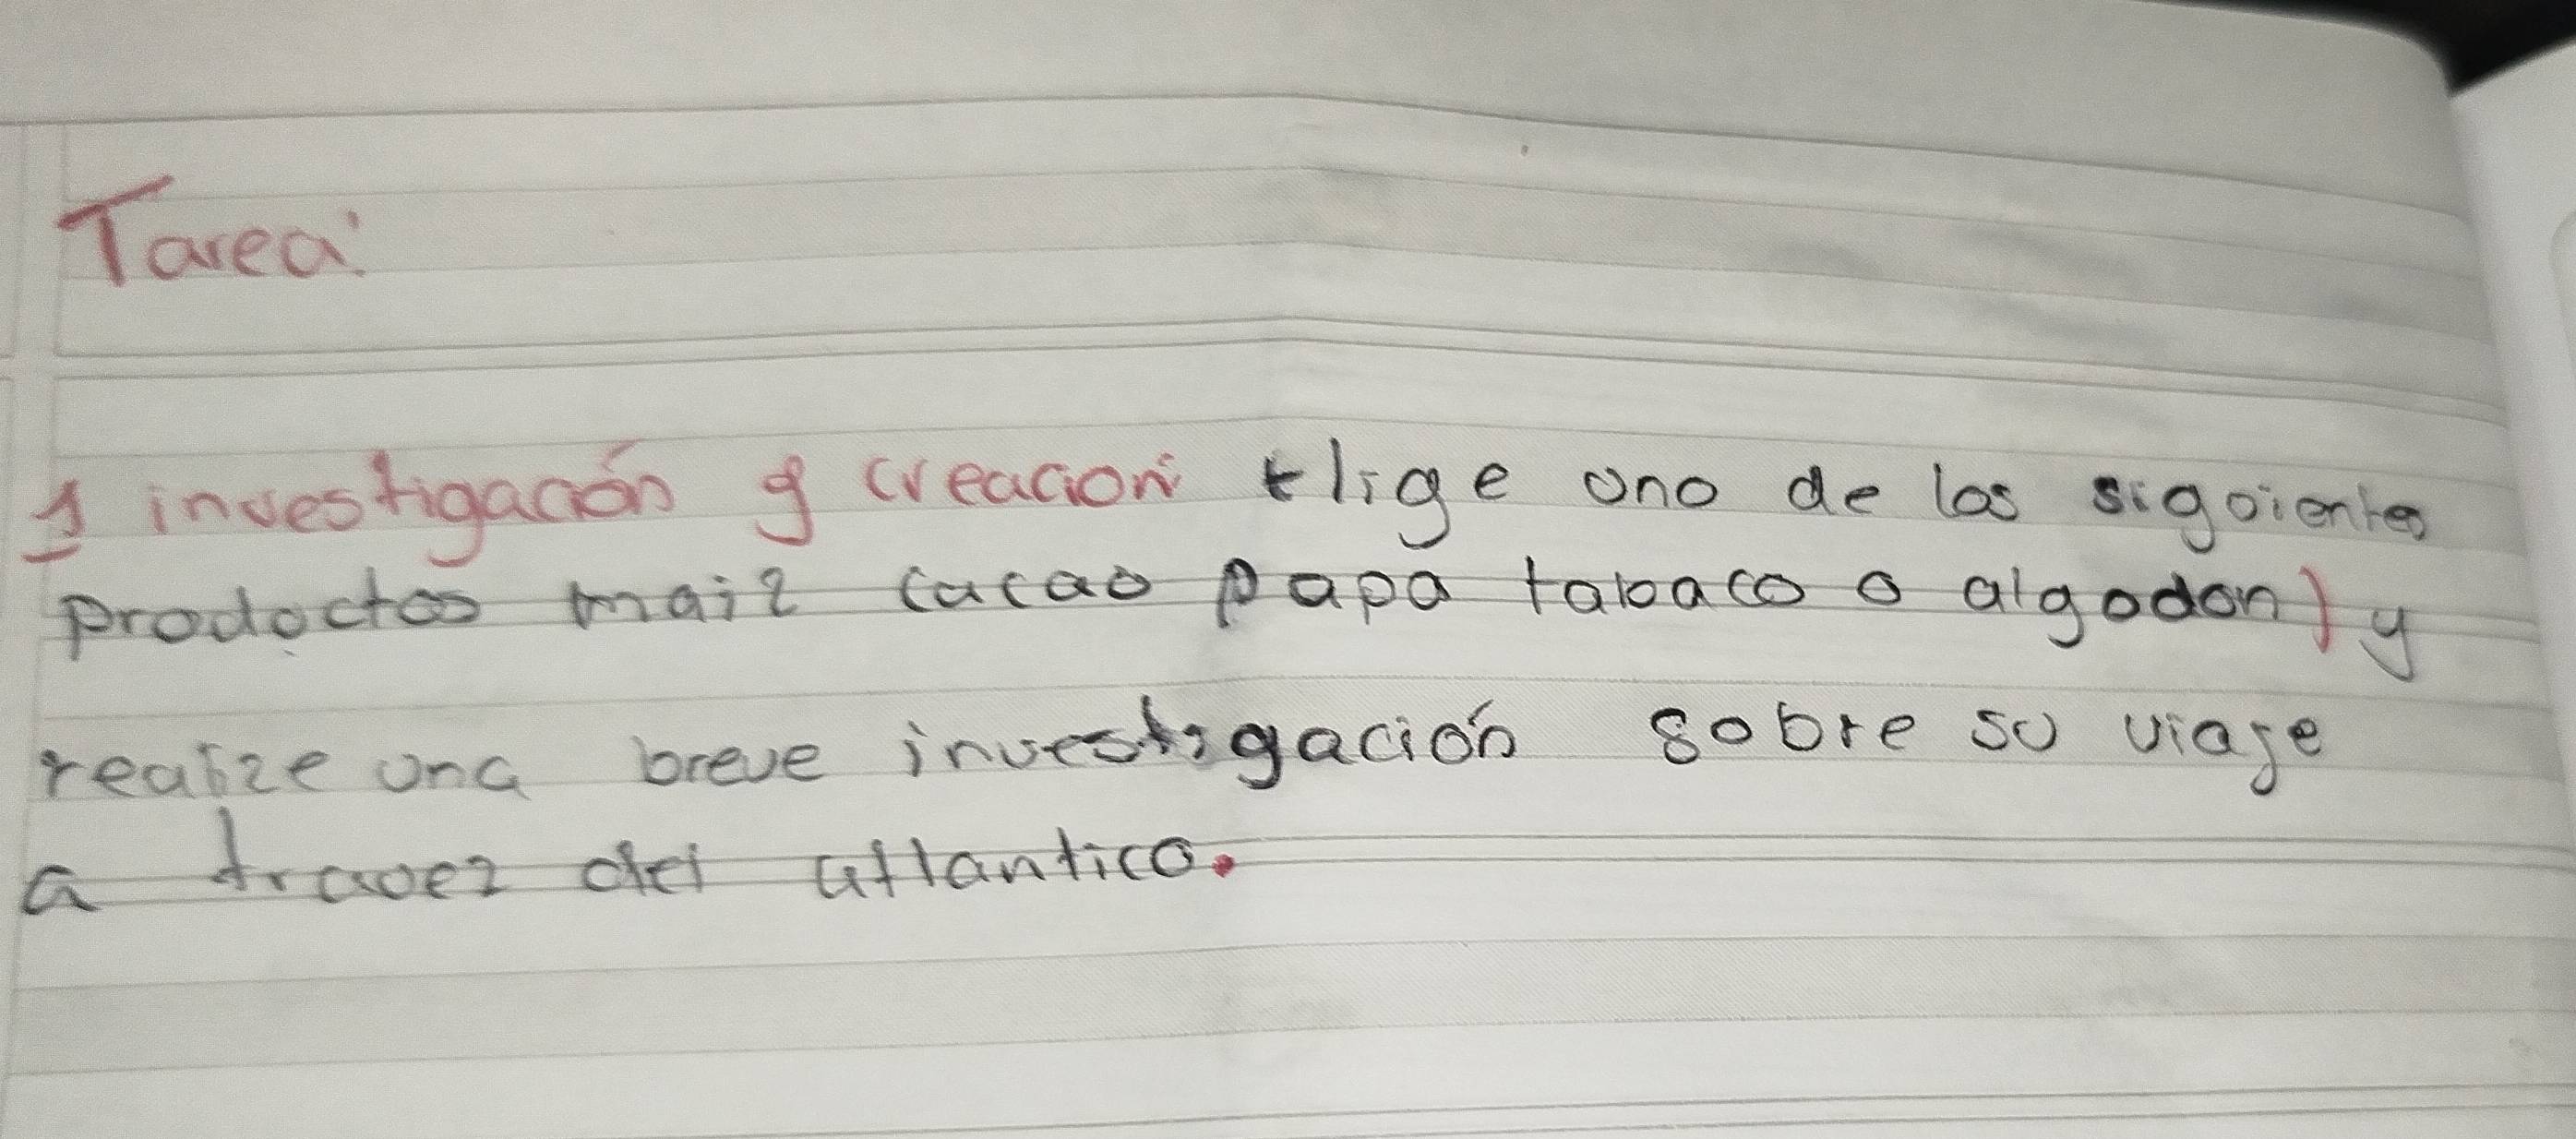 Tarea:
1 investigación y creación elige uno de los siguientes
productos maiz cacao papa tabaco o algodon) y
realize una breve investigación sobre su viaje
a travez del atlantico.